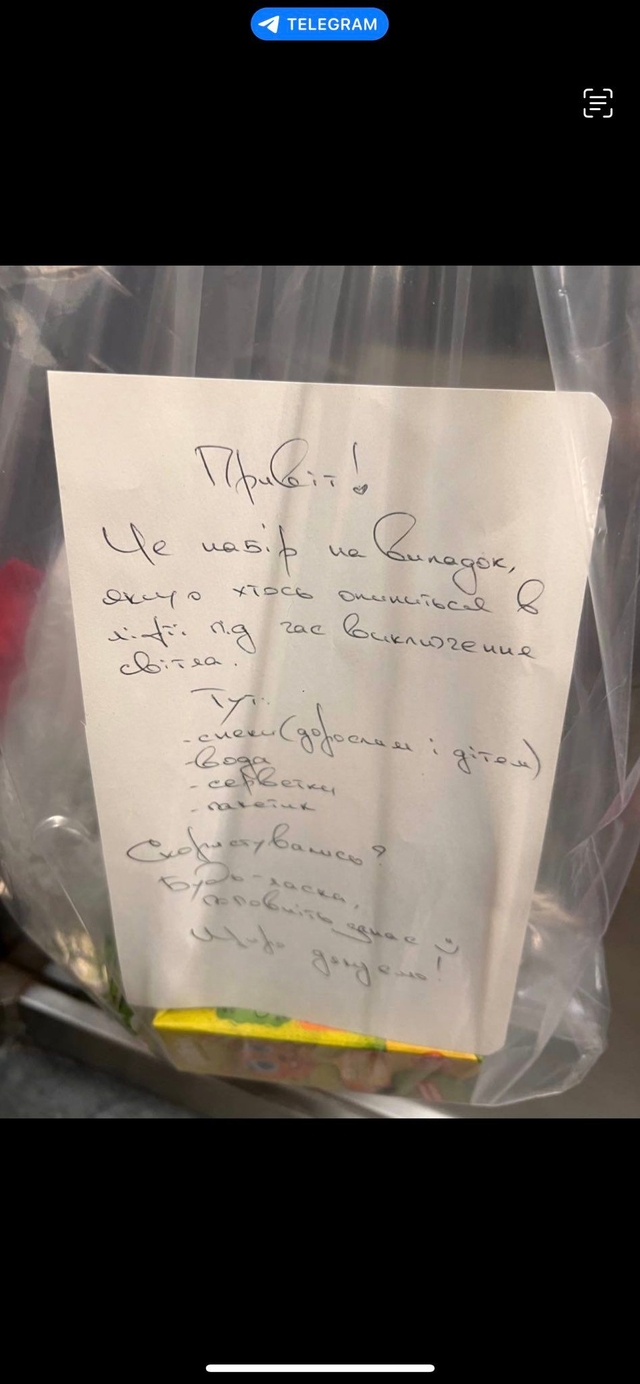 TELEGRAM
Привіт!
Це набір на випадок,
якщо хтось опиниться в
ліфті під час виключення
світла.
Тут:
- снеки (дорослим і дітям)
- вода
- серветки
- пакетик
Скористувались?
Будь-ласка,
поповніть запас
Щиро дякуємо!